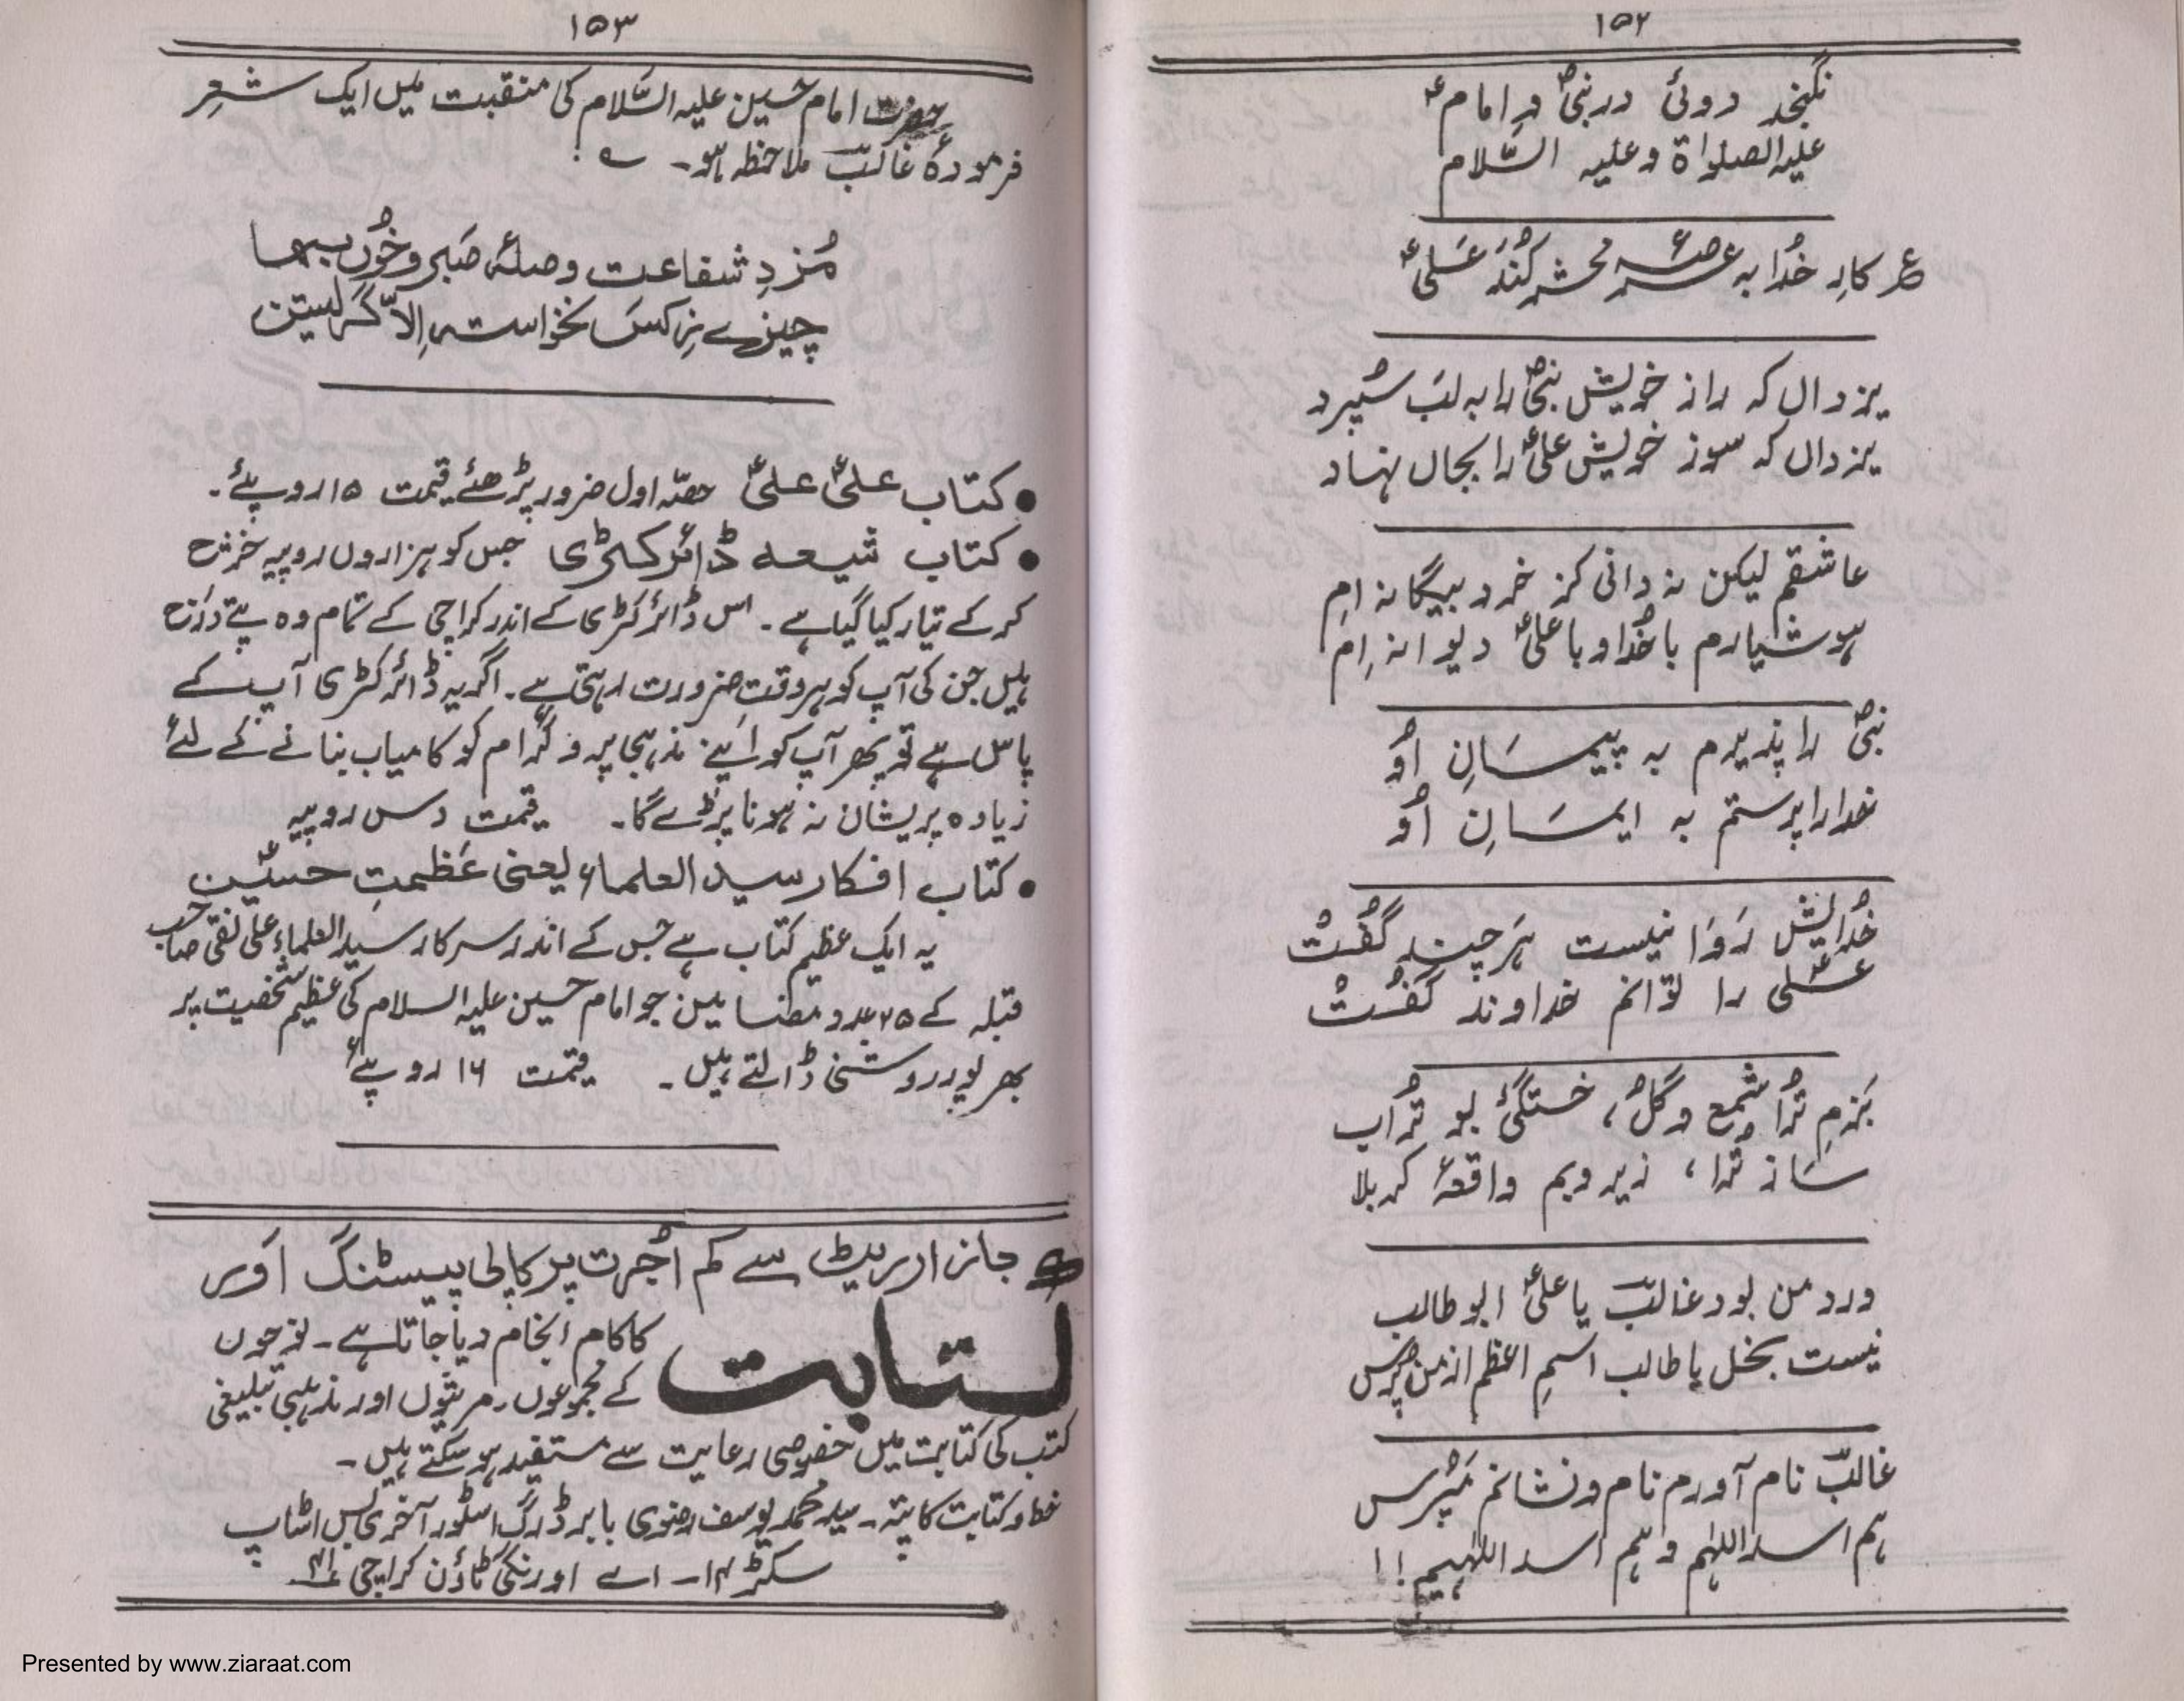 ۱۵۲
نگنجد دوئی در نبیؐ و امامؑ
علیہ الصلواۃ وعلیہ السَّلام
ع کارِ خُدا بہ عرصۂ محشر کُنَد عَلیؑ
یزداں کہ راز خویش نبیؐ را بہ لبَ سُپرد
یزداں کہ سوز خویش علیؑ را بجاں نہاد
عاشقم لیکن نہ دانی کز خرد بیگانہ ام
ہوشیارم باخُدا و با علیؑ دیوانہ اِم
نبیؐ را پذیرم بہ پیمسَانِ اوُ
خدارا پرستم بہ ایمسَانِ اوُ
خُدایش رَوَا نیست ہَرچند گُفتْ
عَلی را توَانم خداوند گُفتْ
بَزمِ تُرا شمع و گلُ، خستگیٔ بو تُراب
سَازِ تُرا، زیر و بم واقعۂ کربلا
ورد من بود غالبؔ یا علیؑ ابو طالب
نیست بخل یا طالب اسمِ اعظم از من پرس
غالبؔ نام آورم نام و نشانم مَپُرس
ہم اسد اللہٰم و ہم اسد اللہٰیم!!
۱۵۳
حضرت امام حسین علیہ السَّلام کی منقبت میں ایک شعر
فرمودۂ غالبؔ ملاحظہ ہو۔
مُزدِ شفاعت و صلۂ صَبر و خُوں بہا
چیزے نِہ کسَ نخواستہ اِلّا گرَیستن
● کتاب علیؑ علیؑ حصّہ اول ضرور پڑھئے قیمت ۱۵ روپیئے۔
● کتاب شیعہ ڈائرکٹری جس کو ہزاروں روپیہ خرش
کرکے تیار کیا گیا ہے۔ اس ڈائرکٹری کے اندر کراچی کے تمام وہ پتے درَج
ہیں جن کی آپ کو ہر وقت ضرورت رہتی ہے۔ اگر یہ ڈائرکٹری آپ کے
پاس ہے تو پھر آپ کو اَپنے مذہبی پروگرام کو کامیاب بنانے کے لئے
زیادہ پریشان نہ ہونا پڑے گا۔ قیمت دس روپیہ
● کتاب افکار سید العلماء یعنی عَظمتِ حسینؑ
یہ ایک عظیم کتاب ہے جس کے اندر سرکار سید العلماء علی نقی صاحب
قبلہ کے ۲۵ عدد مضامین جو امام حسین علیہ السلام کی عظیم شخصیت پر
بھر پور روشنی ڈالتے ہیں۔ قیمت ۱۶ روپیئے
جانز ار ریٹ سے کم اُجرت پر کاپی پیسٹنگ اوَر
کتابت کا کام انجام دیا جاتا ہے۔ نوحوں
کے مجموعوں۔ مرثیوں اور مذہبی تبلیغی
کتب کی کتابت میں خصوصی رعایت سے مستفید ہو سکتے ہیں۔
خط و کتابت کا پتہ۔ سید محمد یوسف رضوی بابر ڈرگ اسٹور آخری بس اسٹاپ
سکٹر ۱۴۔ اے اورنگی ٹاؤن کراچی
Presented by www.ziaraat.com